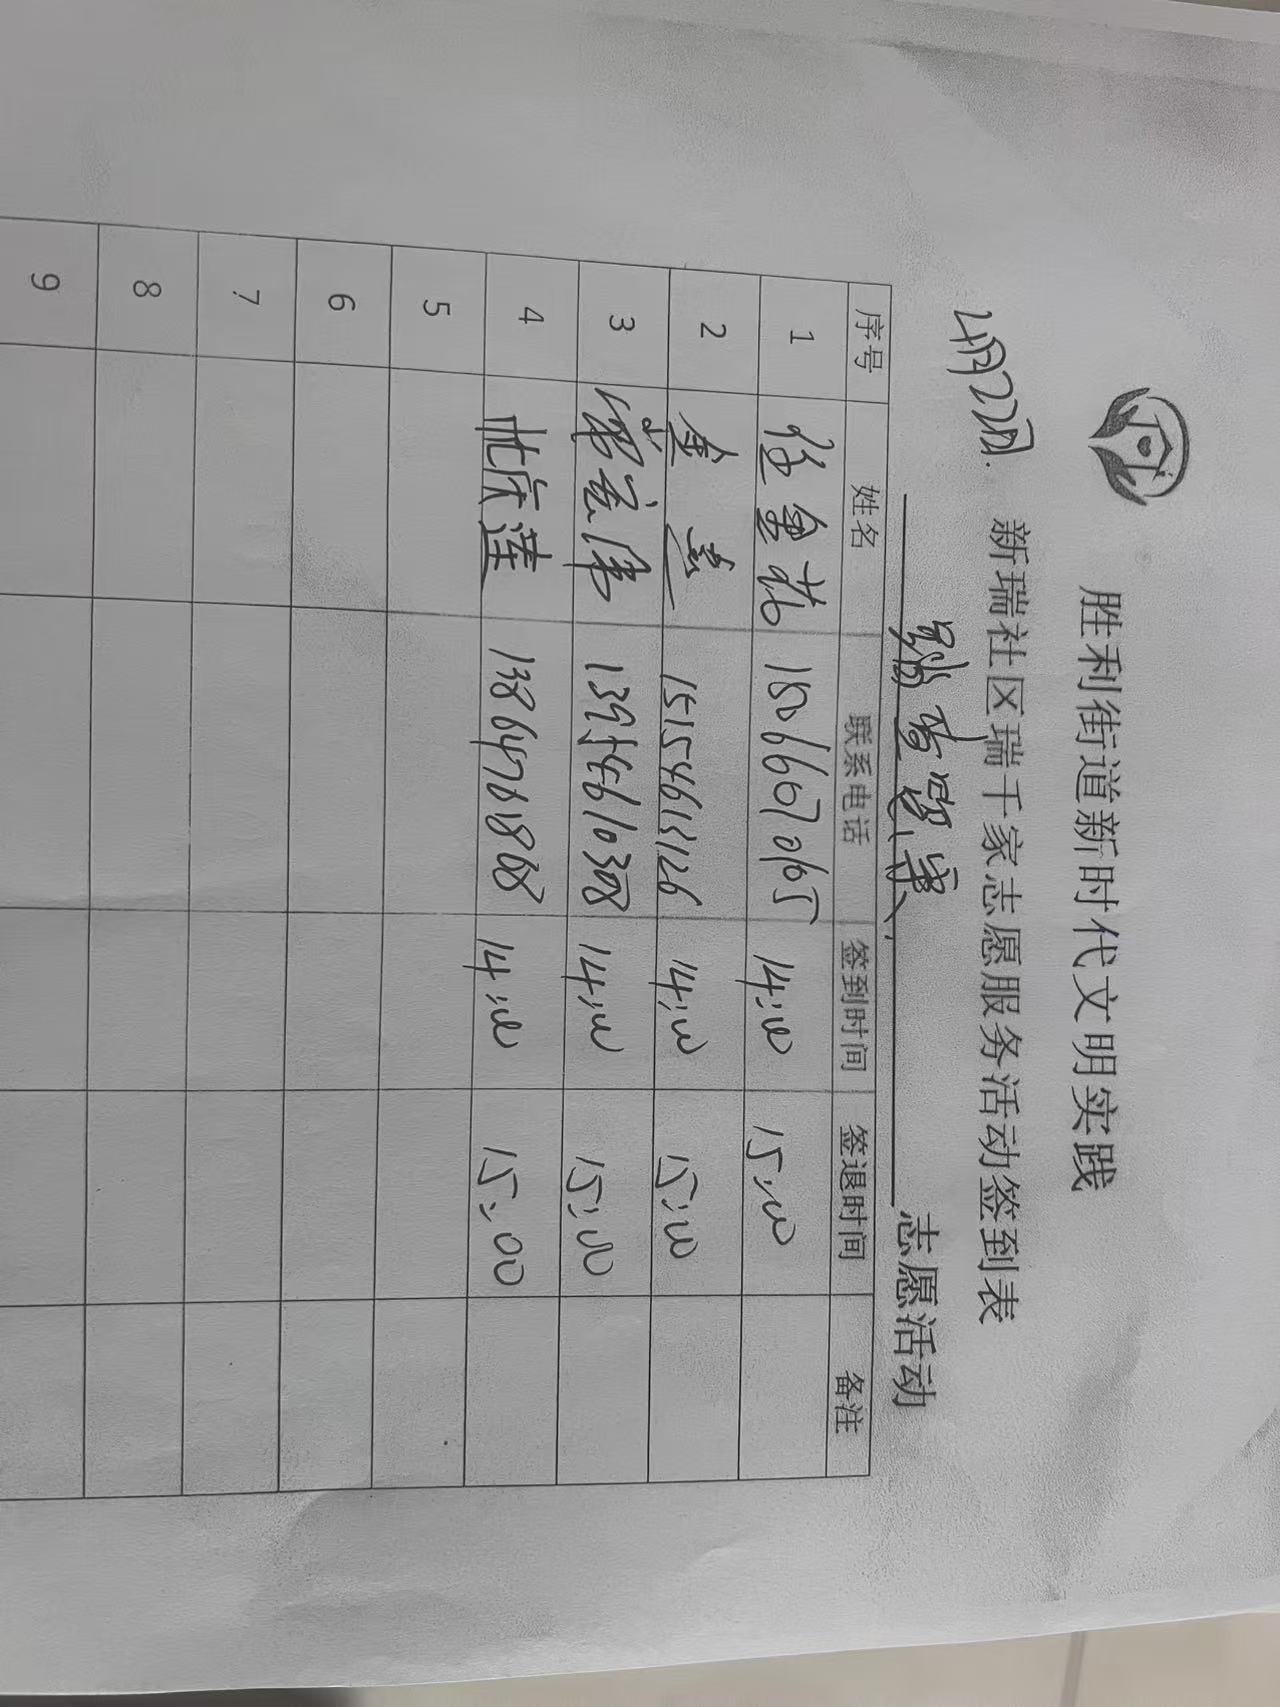 胜利街道新时代文明实践
4月22日. 新瑞社区瑞千家志愿服务活动签到表
志愿活动
序号 姓名 联系电话 签到时间 签退时间 备注
1 任金花 14:00 15:00
2 金 15154613126 14:00 15:00
3 13954610308 14:00 15:00
4 庆莲 13864761868 14:00 15:00
5
6
7
8
9